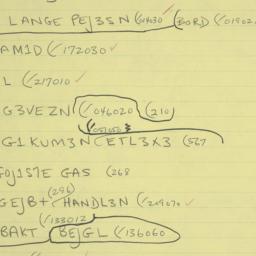 LANGE PEJ3SN (14030 ✓ (BORD) (01902
AM1D (172030 ✓
L (217010 ✓
G3VEZN (046020) (210)
(051050)
G1KUM3NCETL3X3 (567
GOJ1S7E GAS (268
(296)
GEJB+ HANDL3N (209070 ✓
(133012)
BAKT (BEJGL (136060)